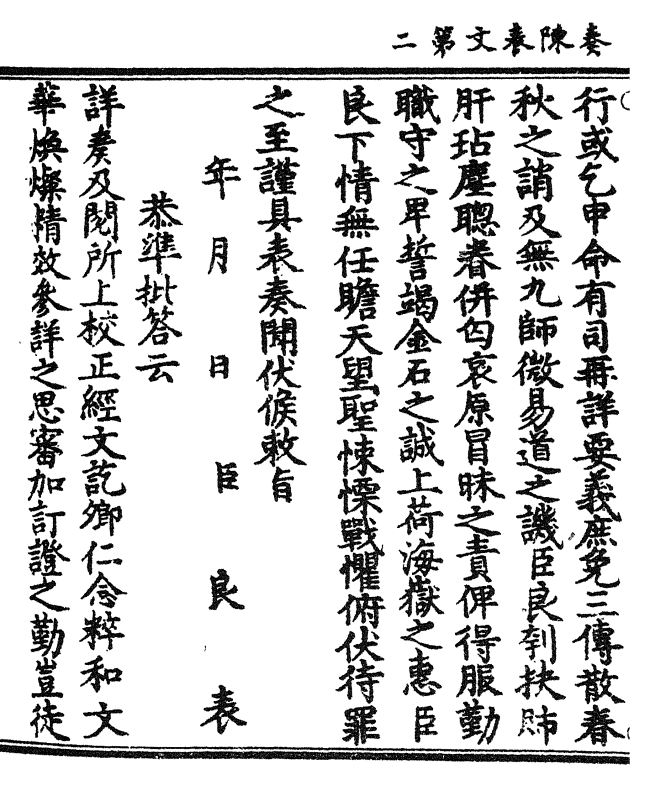 奏陳表文第二
行或乞申命有司再詳要義庶免三傳散春
秋之誚及無九師微易道之譏臣良刳抉肺
肝玷塵聰眷併匄哀原冒昧之責俾得服勤
職守之卑誓竭金石之誠上荷海嶽之惠臣
良下情無任瞻天望聖悚慄戰懼俯伏待罪
之至謹具表奏聞伏候敕旨
年月日臣良表
恭準批答云
詳奏及閱所上校正經文訖卿仁念粹和文
華煥燦精效參詳之思審加訂證之勤豈徒